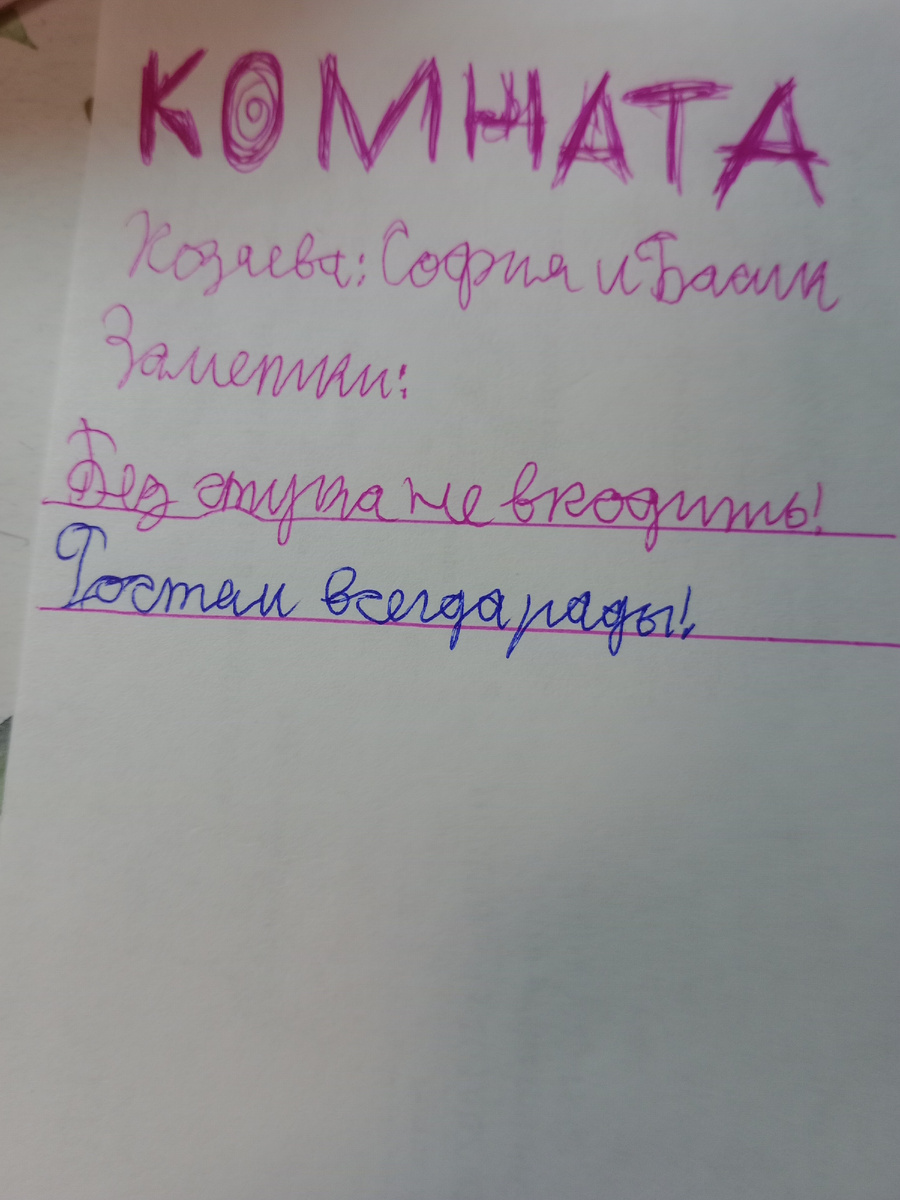 КОМНАТА
Хозаева: София и Басик
Заметики:
Без стука не входить!
Гостем всегда рады!